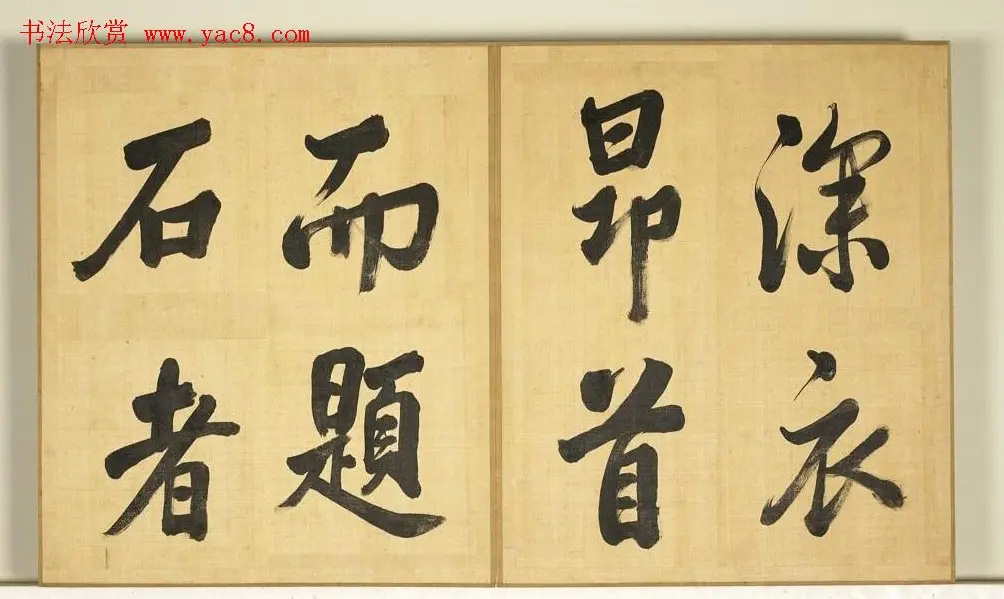 书法欣赏 www.yac8.com
深衣
昂首
而題
石者